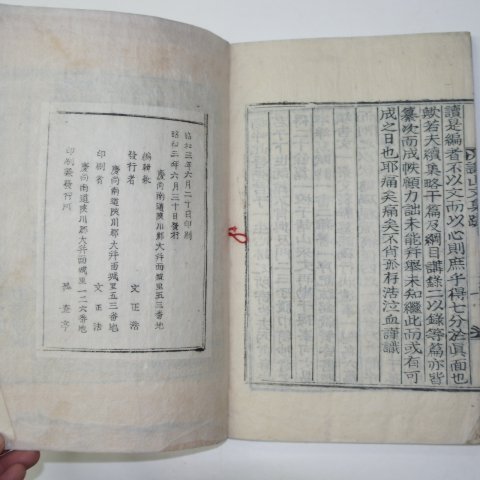 讀是編者不以文而以心則庶乎得七分淂眞面也
歟若夫續集略干篇及綱目講錄二以錄等篇亦皆
纂次而成帙願力詘未能幷擧未知繼此而或有可
成之日也耶痛矣痛矣不肖孤存浩泣血謹識
昭和三年六月二十日印刷
昭和三年六月三十日發行
慶尙南道陜川郡大幷面城里五三番地
發行者 文正浩
慶尙南道陜川郡大幷面城里五三番地
印刷者 文正浩
慶尙南道陜川郡大幷面城里一二六番地
印刷兼發行所